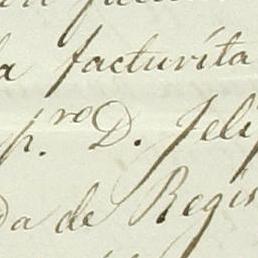 a facturíta
p.ro D. Feli
da de Regis